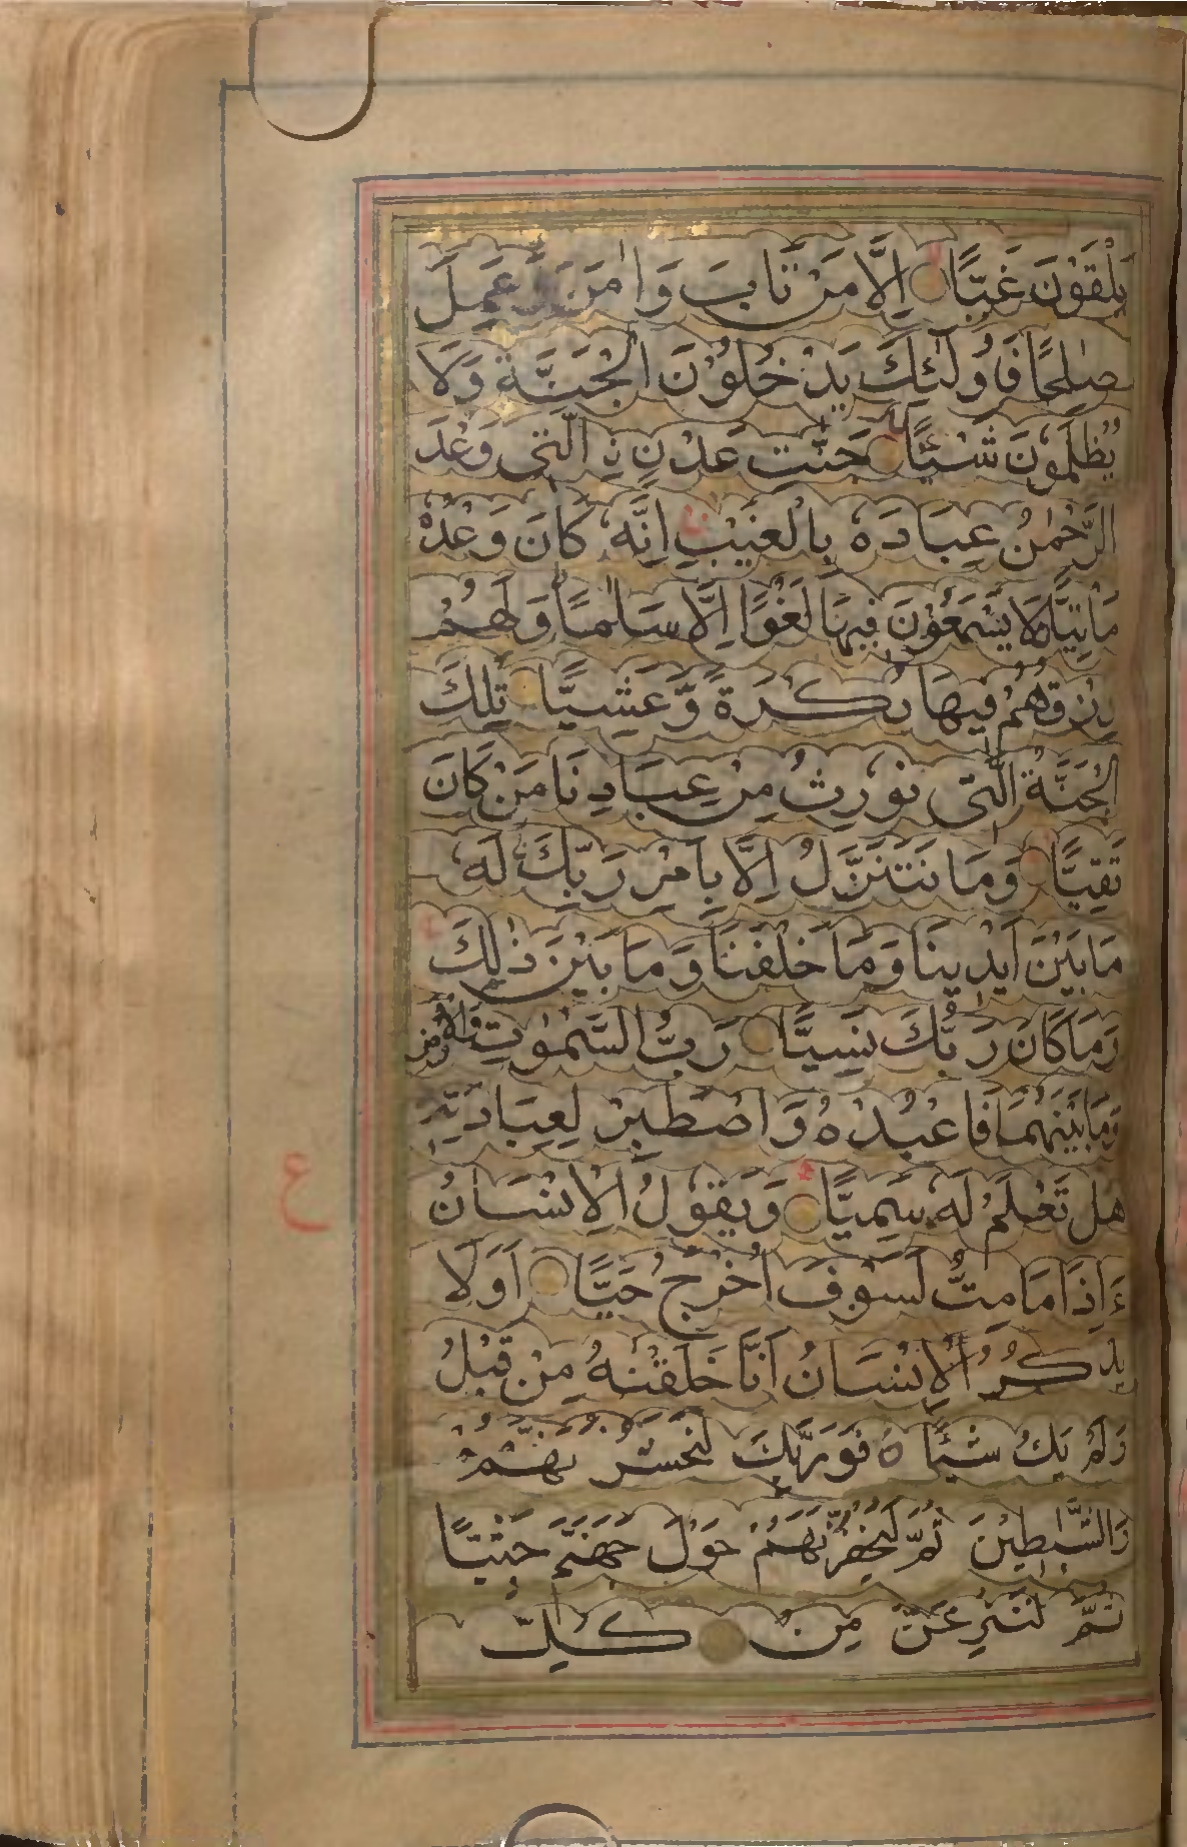 يَلْقَوْنَ غَيًّا اِلَّا مَنْ تَابَ وَاٰمَنَ وَعَمِلَ
صٰلِحًا فَاُولٰٓئِكَ يَدْخُلُوْنَ الْجَنَّةَ وَلَا
يُظْلَمُوْنَ شَيْئًا جَنّٰتِ عَدْنٍ نِ الَّتِىْ وَعَدَ
الرَّحْمٰنُ عِبَادَهٗ بِالْغَيْبِ اِنَّهٗ كَانَ وَعْدُهٗ
مَاْتِيًّا لَا يَسْمَعُوْنَ فِيْهَا لَغْوًا اِلَّا سَلٰمًا وَلَهُمْ
رِزْقُهُمْ فِيْهَا بُكْرَةً وَّعَشِيًّا تِلْكَ
الْجَنَّةُ الَّتِىْ نُوْرِثُ مِنْ عِبَادِنَا مَنْ كَانَ
تَقِيًّا وَمَا نَتَنَزَّلُ اِلَّا بِاَمْرِ رَبِّكَ لَهٗ
مَا بَيْنَ اَيْدِيْنَا وَمَا خَلْفَنَا وَمَا بَيْنَ ذٰلِكَ
وَمَا كَانَ رَبُّكَ نَسِيًّا رَبُّ السَّمٰوٰتِ وَالْاَرْضِ
وَمَا بَيْنَهُمَا فَاعْبُدْهُ وَاصْطَبِرْ لِعِبَادَتِهٖ
هَلْ تَعْلَمُ لَهٗ سَمِيًّا وَيَقُوْلُ الْاِنْسَانُ
ءَاِذَا مَا مِتُّ لَسَوْفَ اُخْرَجُ حَيًّا اَوَلَا
يَذْكُرُ الْاِنْسَانُ اَنَّا خَلَقْنٰهُ مِنْ قَبْلُ
وَلَمْ يَكُ شَيْئًا ه فَوَرَبِّكَ لَنَحْشُرَنَّهُمْ
وَالشَّيٰطِيْنَ ثُمَّ لَنُحْضِرَنَّهُمْ حَوْلَ جَهَنَّمَ جِثِيًّا
ثُمَّ لَنَنْزِعَنَّ مِنْ كُلِّ
ع